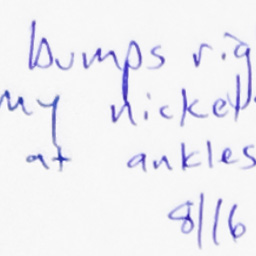 bumps rig
my nickel
at ankles
8/16